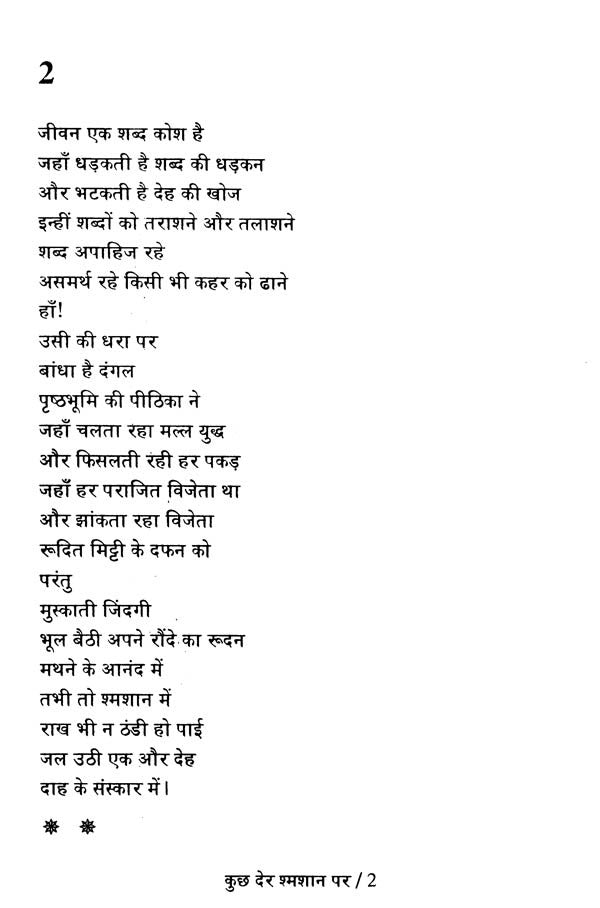 2
जीवन एक शब्द कोश है
जहाँ धड़कती है शब्द की धड़कन
और भटकती है देह की खोज
इन्हीं शब्दों को तराशने और तलाशने
शब्द अपाहिज रहे
असमर्थ रहे किसी भी कहर को ढाने
हाँ!
उसी की धरा पर
बांधा है दंगल
पृष्ठभूमि की पीठिका ने
जहाँ चलता रहा मल्ल युद्ध
और फिसलती रही हर पकड़
जहाँ हर पराजित विजेता था
और झांकता रहा विजेता
रूदित मिट्टी के दफन को
परंतु
मुस्काती जिंदगी
भूल बैठी अपने रौंदे का रूदन
मथने के आनंद में
तभी तो श्मशान में
राख भी न ठंडी हो पाई
जल उठी एक और देह
दाह के संस्कार में।
कुछ देर श्मशान पर / 2